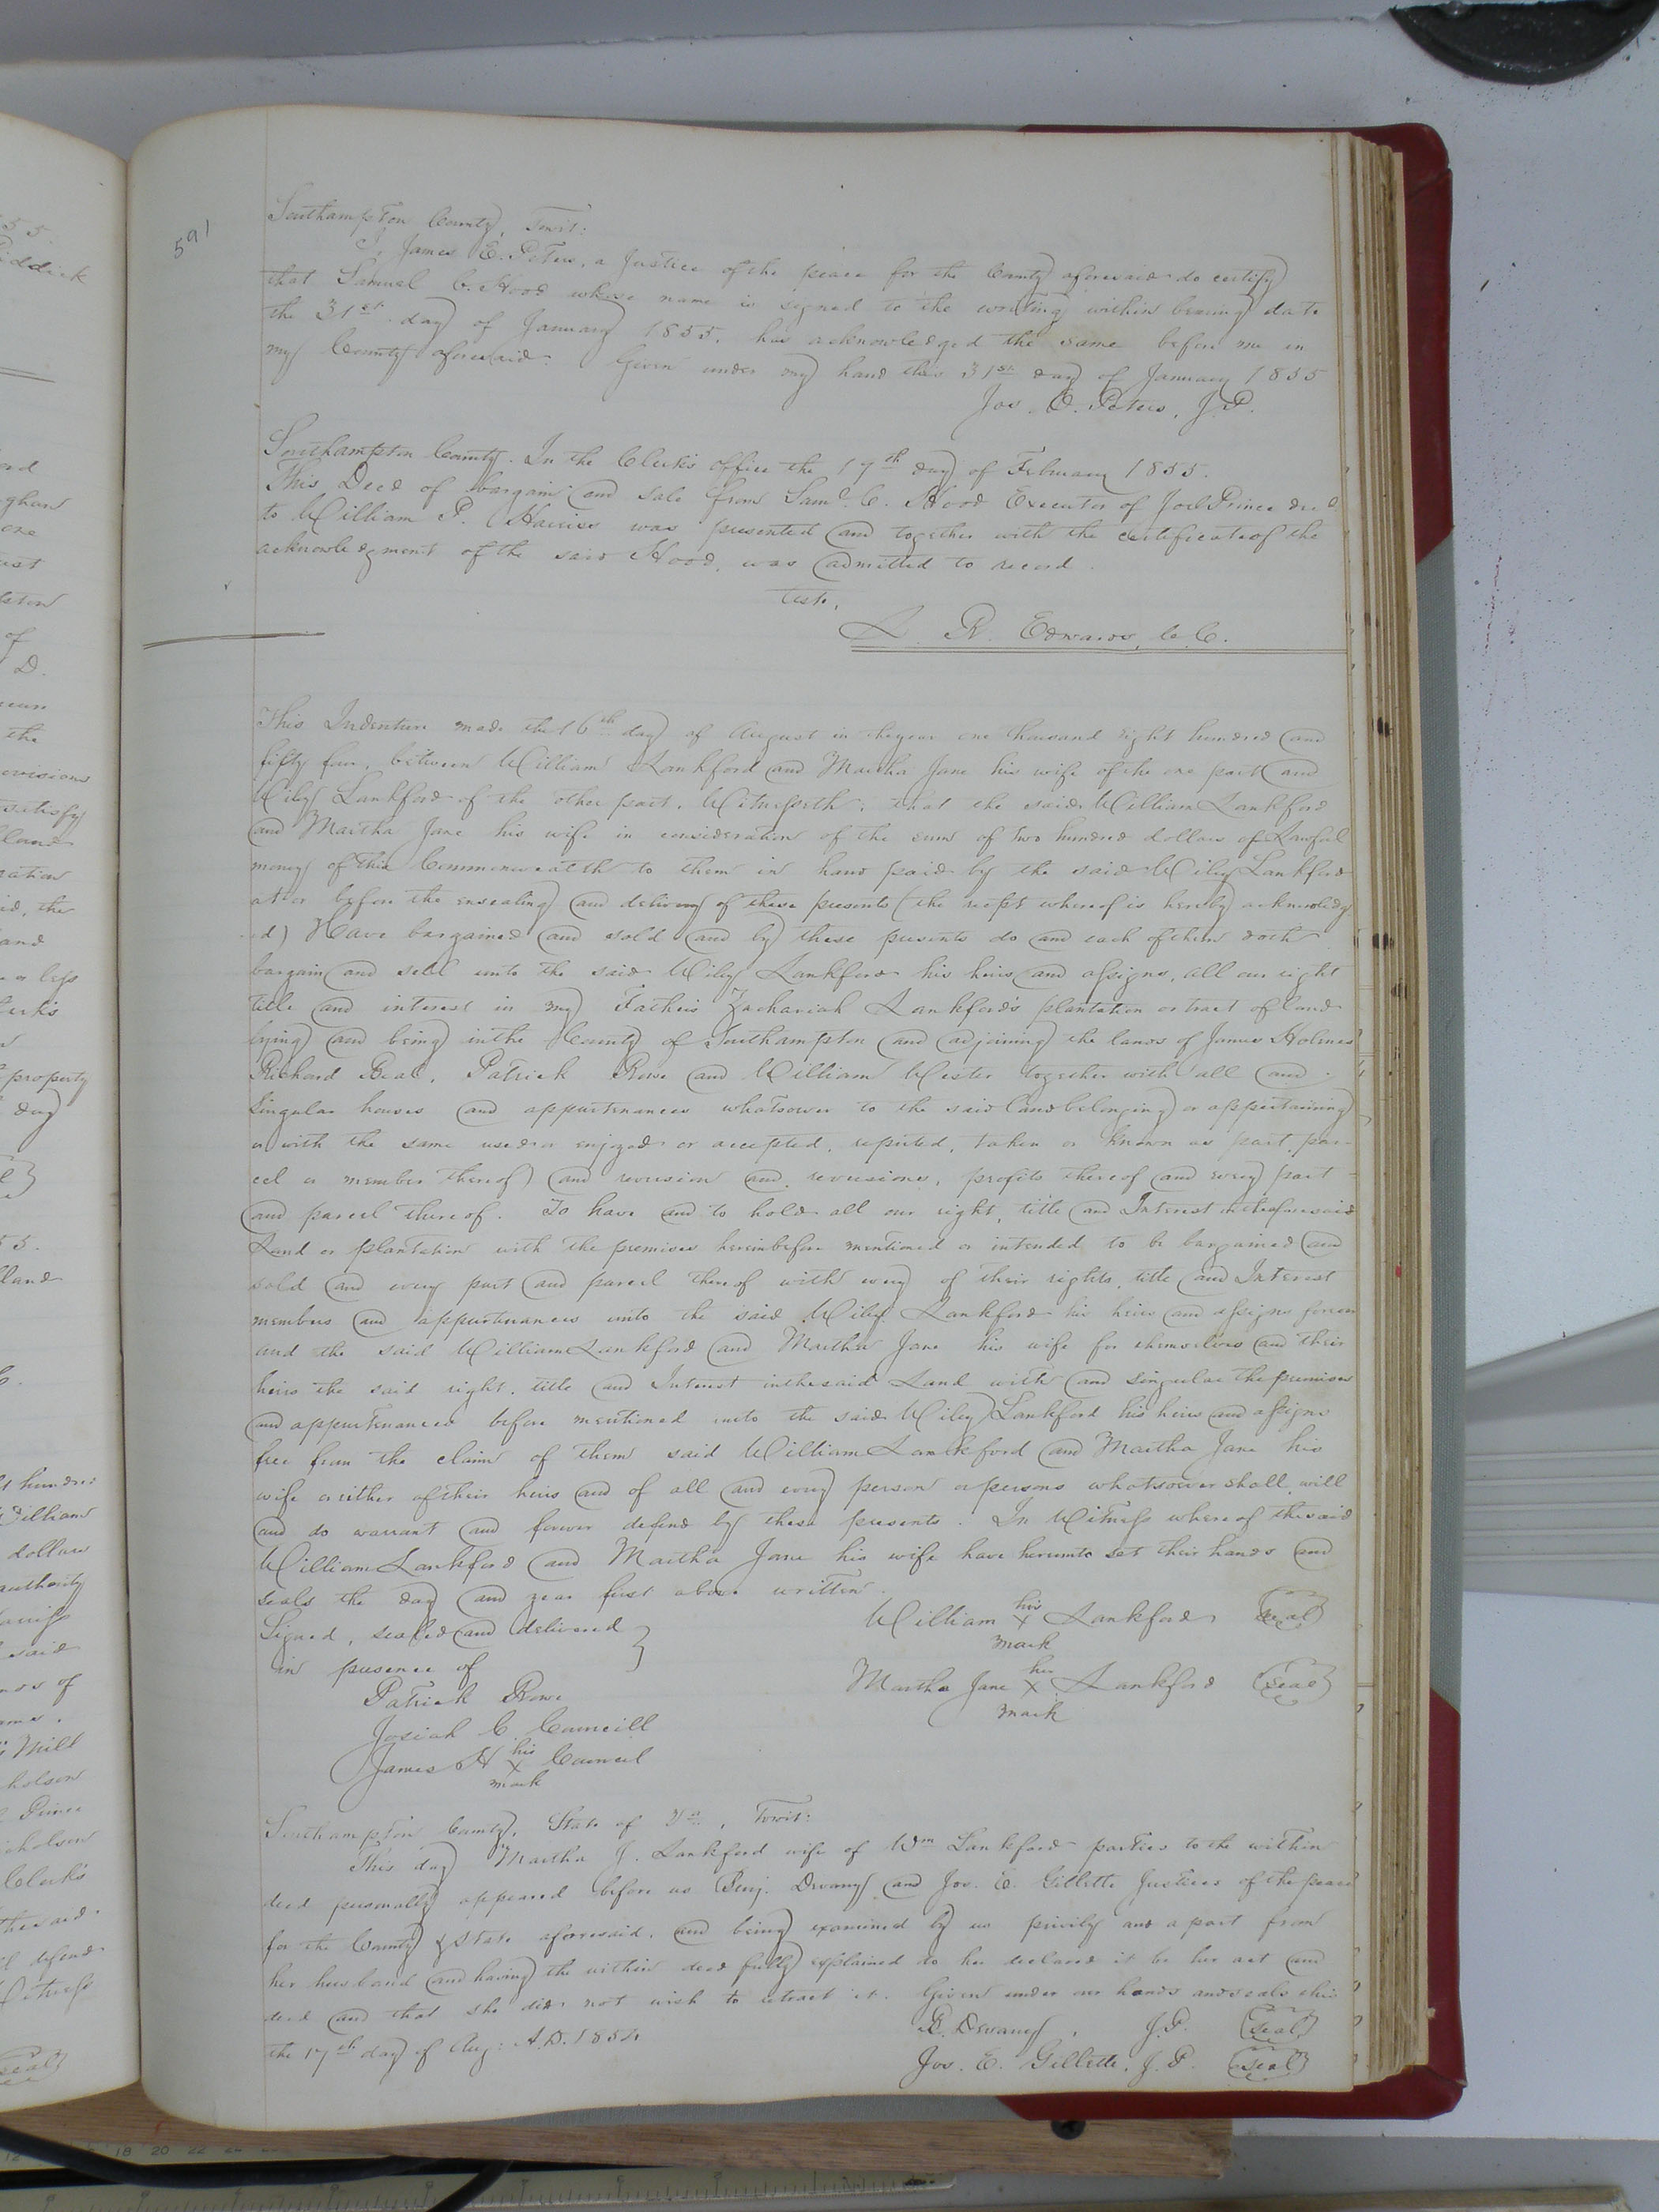 591
Southampton County, Towit:
I, James E. Peters, a Justice of the peace for the County aforesaid do certify
that Samuel C. Hood whose name is signed to the writing within bearing date
the 31st day of January 1855, has acknowledged the same before me in
my County aforesaid. Given under my hand this 31st day of January 1855
Jas. E. Peters, J.P.
Southampton County. In the Clerk's office the 19th day of February 1855.
This Deed of bargain and sale from Saml. C. Hood Executor of Joel Prince decd
to William P. Harriss was presented and together with the certificate of the
acknowledgment of the said Hood, was admitted to record.
Teste,
L. R. Edwards, C.C.
This Indenture made the 16th day of August in the year one thousand eight hundred and
fifty four, between William Lankford and Martha Jane his wife of the one part and
Wiley Lankford of the other part, Witnesseth: that the said William Lankford
and Martha Jane his wife in consideration of the sum of two hundred dollars of Lawful
money of this Commonwealth to them in hand paid by the said Wiley Lankford
at or before the ensealing and delivery of these presents (the receipt whereof is hereby acknowledg
-ed) Have bargained and sold and by these presents do and each of them doth
bargain and sell unto the said Wiley Lankford his heirs and assigns, all our right
title and interest in my Father's Zachariah Lankford's plantation or tract of land
lying and being in the County of Southampton and adjoining the lands of James Holmes
Richard Beal, Patrick Rowe and William Wester together with all and
Singular houses and appurtenances whatsoever to the said land belonging or appertaining
or with the same used or enjoyed or accepted, reputed, taken or known as part, par-
cel or member thereof) and reversion and reversions, profits thereof and every part
and parcel thereof. To have and to hold all our right, title and Interest in the aforesaid
Land or plantation with the premises hereinbefore mentioned or intended to be bargained and
sold and every part and parcel thereof with every of their rights, title and Interest
members and appurtenances unto the said Wiley Lankford his heirs and assigns forever
and the said William Lankford and Martha Jane his wife for themselves and their
heirs the said right, title and Interest in the said Land with and singular the premises
and appurtenances before mentioned unto the said Wiley Lankford his heirs and assigns
free from the claim of them said William Lankford and Martha Jane his
wife or either of their heirs and of all and every person or persons whatsoever shall, will
and do warrant and forever defend by these presents. In Witness whereof the said
William Lankford and Martha Jane his wife have hereunto set their hands and
seals the day and year first above written.
Signed, sealed and delivered }
in presence of
William his X mark Lankford (seal)
Martha Jane her X mark Lankford (seal)
Patrick Rowe
Josiah C Councill
James H his X mark Councel
Southampton County, State of Va, Towit:
This day Martha J. Lankford wife of Wm Lankford parties to the within
deed personally appeared before us Benj. Devany and Jos. E. Gillette Justices of the peace
for the County & State aforesaid, and being examined by us privily and apart from
her husband and having the within deed fully explained to her declared it be her act and
deed and that she did not wish to retract it. Given under our hands and seals this
the 17th day of Aug: A.D. 1854
B. Devany, J.P. (seal)
Jos. E. Gillette, J.P. (seal)